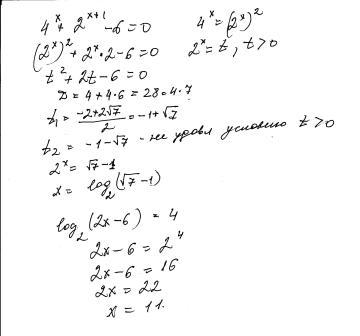 4^x + 2^(x+1) - 6 = 0    4^x = (2^x)^2
(2^x)^2 + 2^x · 2 - 6 = 0    2^x = t, t > 0
t^2 + 2t - 6 = 0
D = 4 + 4·6 = 28 = 4·7
t_1 = (-2+2√7)/2 = -1+√7
t_2 = -1-√7 - не удовл условию t > 0
2^x = √7 - 1
x = log_2 (√7 - 1)
log_2 (2x-6) = 4
2x-6 = 2^4
2x-6 = 16
2x = 22
x = 11.